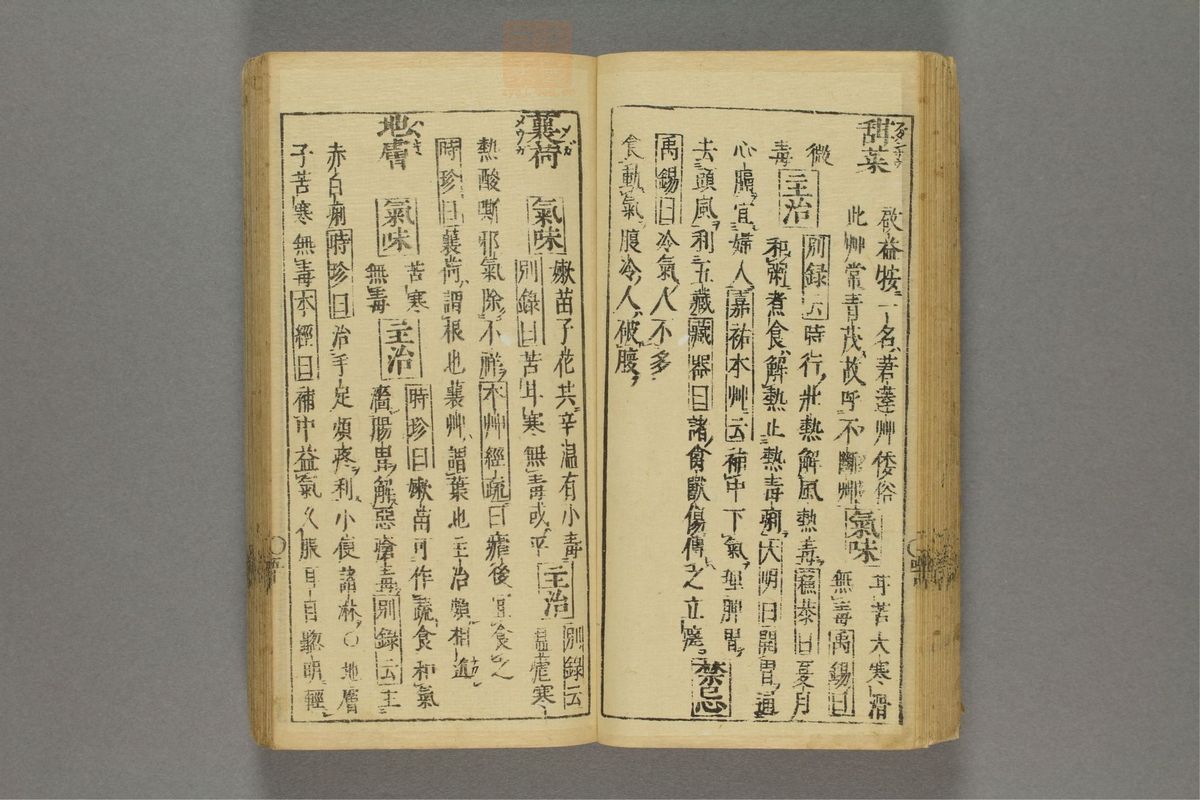 甜菜
啟益按一名莙薘艸倭俗
此艸常青茂故呼不斷艸 氣味 甘苦大寒滑
微毒 無毒禹錫曰
主治 別録云時行壯熱解風熱毒蘓恭曰夏月
和粥煮食解熱止熱毒痢大明曰開胃通
心膈宜婦人嘉祐本艸云補中下氣理脾胃
去頭風利五藏藏器曰諸禽獸傷傅之立 禁忌
禹錫曰冷氣人不多
食動氣腹冷人破腹
メガ
蘘荷
メウガ
氣味 嫩苗子花共辛温有小毒
別錄曰苦甘寒無毒或平 主治 別錄云
温瘧寒
熱酸嘶邪氣除不祥本艸經疏曰瘧後宜食之
時珍曰蘘荷謂根也蘘艸謂葉也主治頗相近
地膚 氣味 苦寒
無毒 主治 時珍曰嫩苗可作蔬食和氣
濇腸胃解惡瘡毒別錄云主
赤白痢時珍曰治手足煩疼利小便諸淋〇地膚
子苦寒無毒本經曰補中益氣久服耳目聰明輕